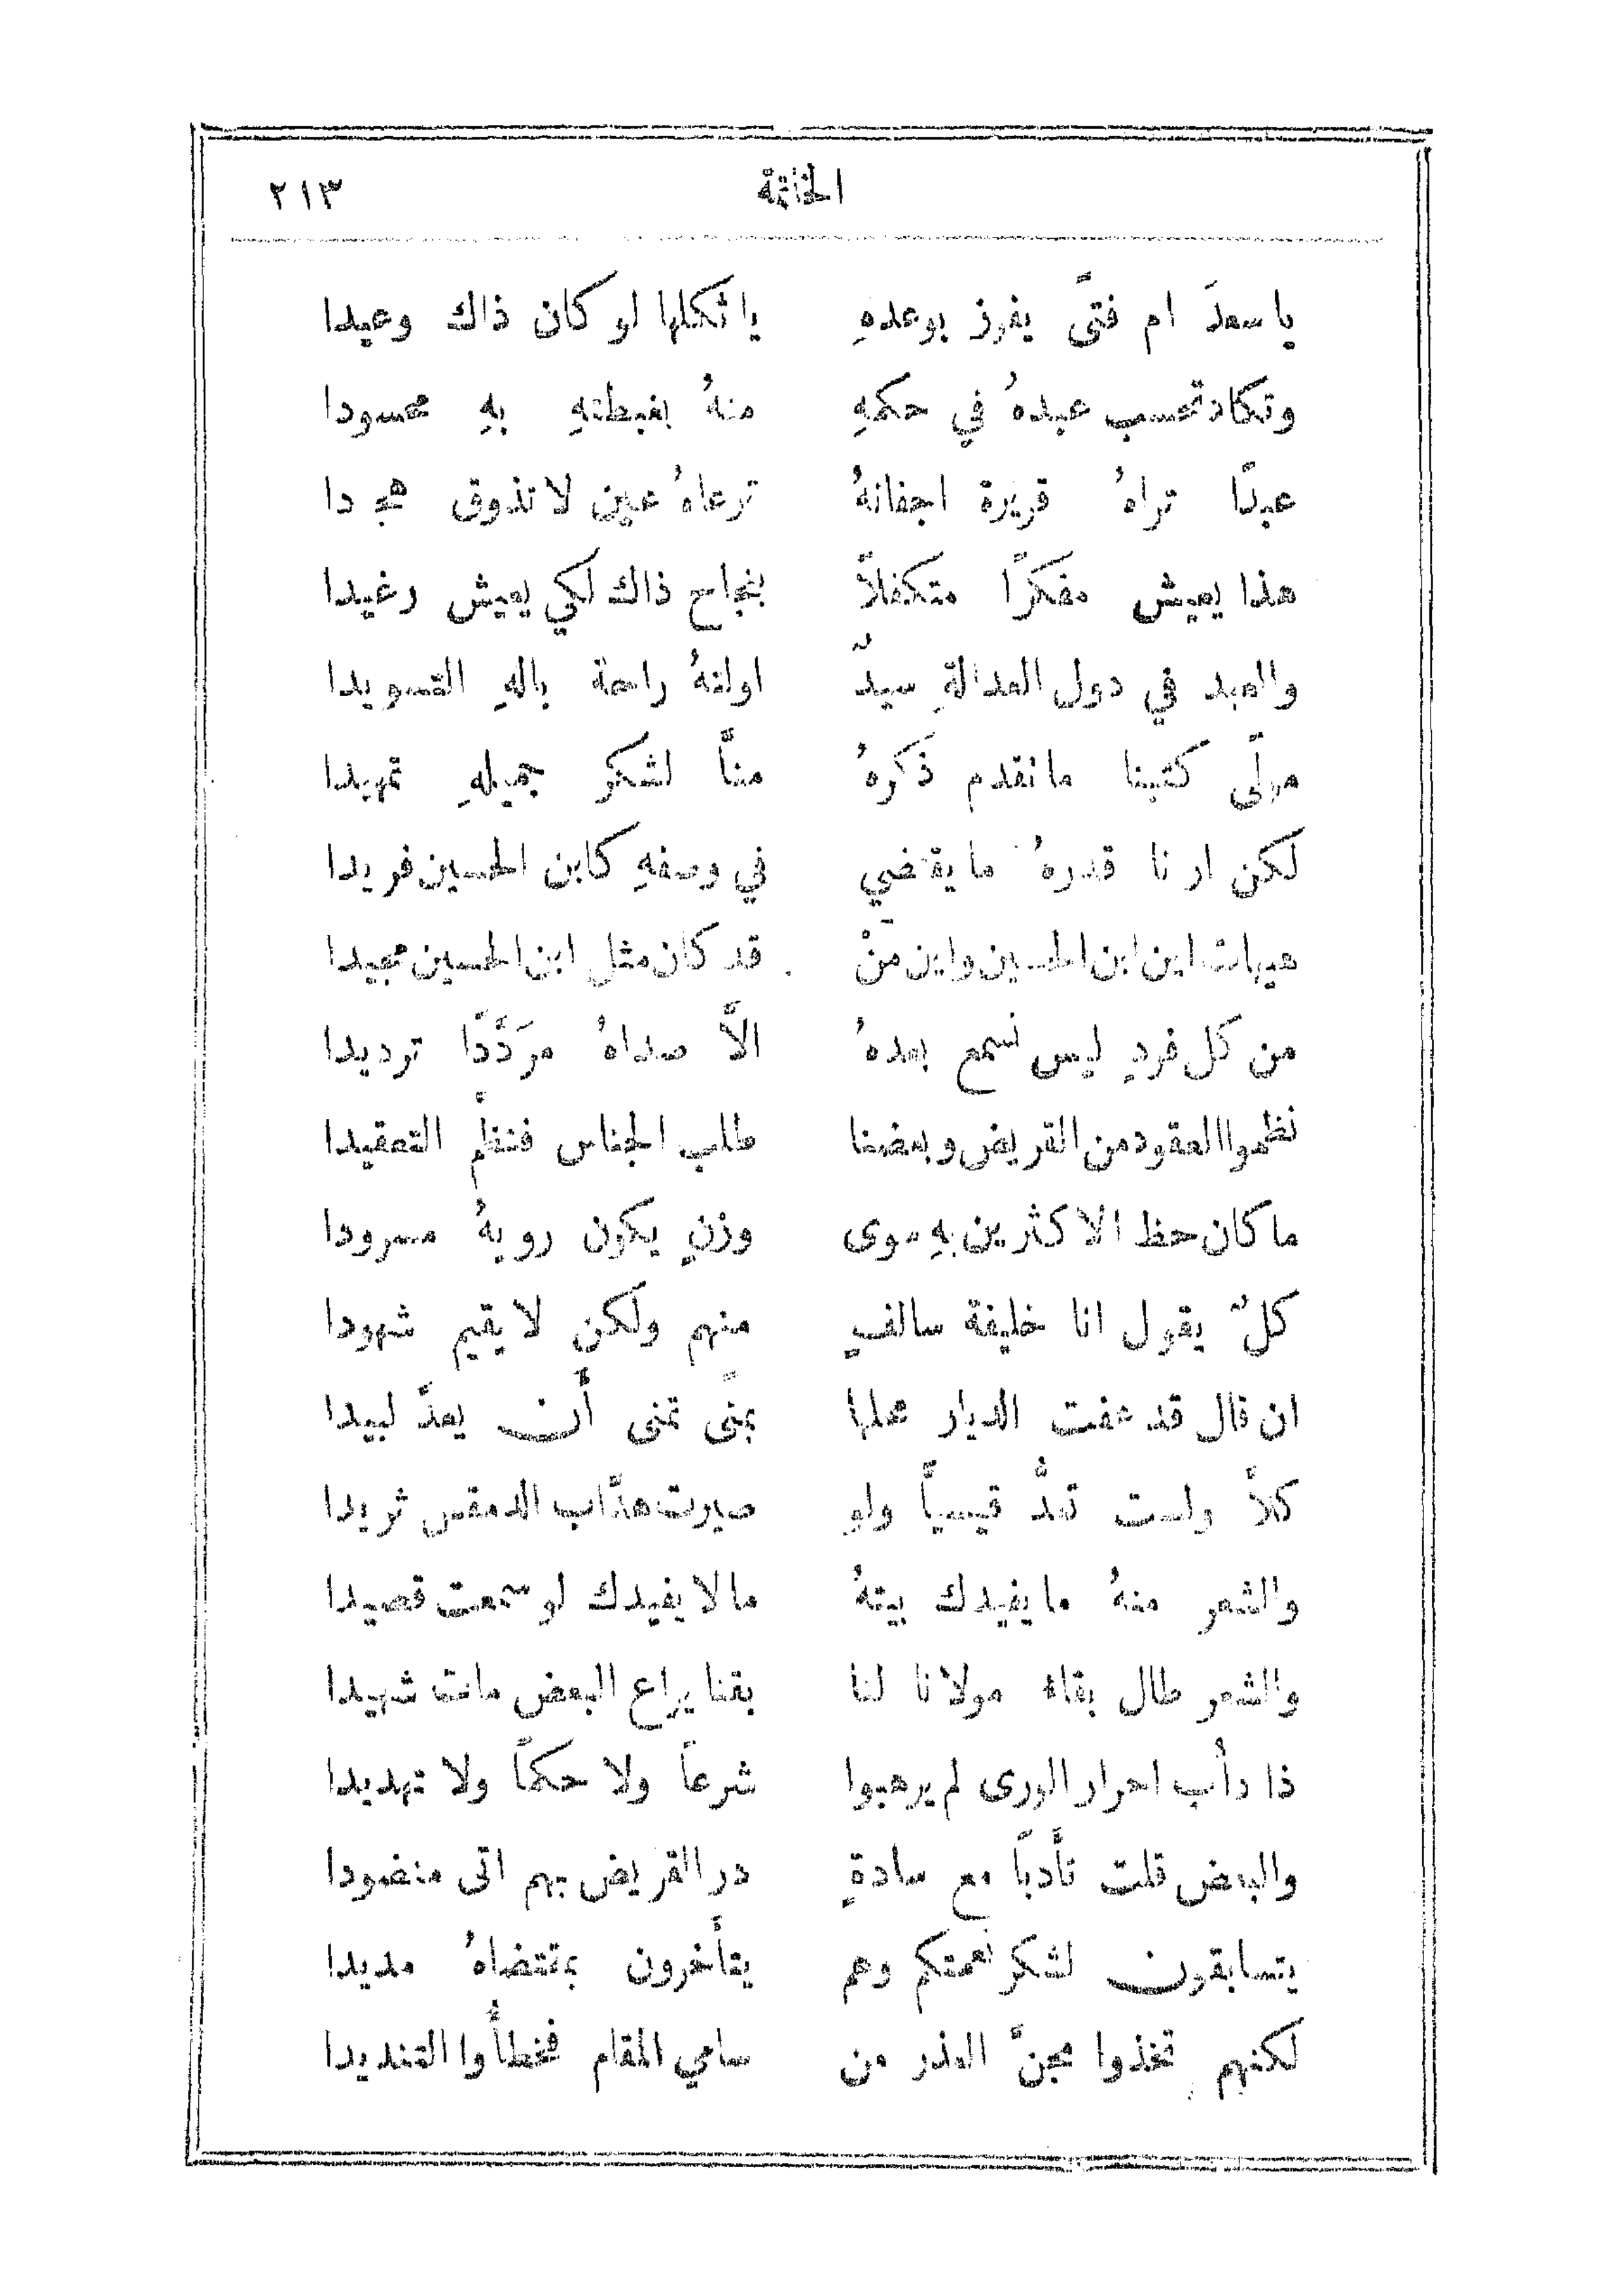 الخاتمة ٢١٣
يا سعدَ ام فتًى يفوز بوعدهِ يا ثكلها لو كان ذاك وعيدا
وتكاد تحسب عبدهُ في حكمهِ منهُ بغبطتهِ بهِ محسودا
عبدًا تراهُ قريرة اجفانهُ ترعاهُ عين لا تذوق هجودا
هذا يعيش مفكرًا متكفلاً بنجاح ذاك لكي يعيش رغيدا
والعبد في دول العدالةِ سيدٌ اولتهُ راحة بالهِ التسويدا
مولًى كتبنا ما تقدم ذَكرهُ منَّا لشكر جميلهِ تمهيدا
لكن ارنا قدرهُ ما يقتضي في وصفهِ كابن الحسين فريدا
هيهات اين ابن الحسين واين مَنْ قد كان مثل ابن الحسين مجيدا
من كل فردٍ ليس نسمع بعدهُ الاَّ صداهُ مرَدَّدًا ترديدا
نظموا العقود من القريض وبعضنا طلب الجناس فنظم التعقيدا
ما كان حظ الاكثرين بهِ سوى وزنٍ يكون رويهُ مسرودا
كلٌ يقول انا خليفة سالفٍ منهم ولكن لا يقيم شهودا
ان قال قد عفت الديار محلها بمنًى تمنى أن يعدَّ لبيدا
كلاَّ ولست تعدُّ قيسيًّا ولو صيرت هدَّاب الدمقس ثريدا
والشعر منهُ ما يفيدك بيتهُ ما لا يفيدك لو سمعت قصيدا
والشعر طال بقاء مولانا لنا بقنا يراع البعض مات شهيدا
ذا دأب احرار الورى لم يرهبوا شرعًا ولا حكمًا ولا تهديدا
والبعض قلت تأدبًا مع سادةٍ در القريض بهم اتى منضودا
يتسابقون لشكر نعمتكم وهم يتأخرون بمقتضاهُ مديدا
لكنهم تخذوا مجنَّ العذر من سامي المقام فخطأُوا التنديدا